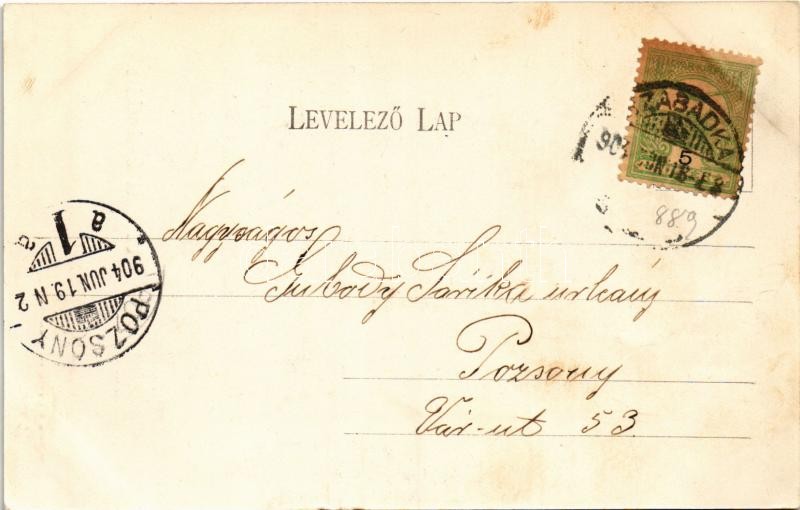 LEVELEZŐ LAP
ZABADKA
904 JUN
5
889
Nagyságos
Gubody Sárika urhány
Pozsony
Vár-ut 53
POZSONY
904 JUN 19. N 2
1
a